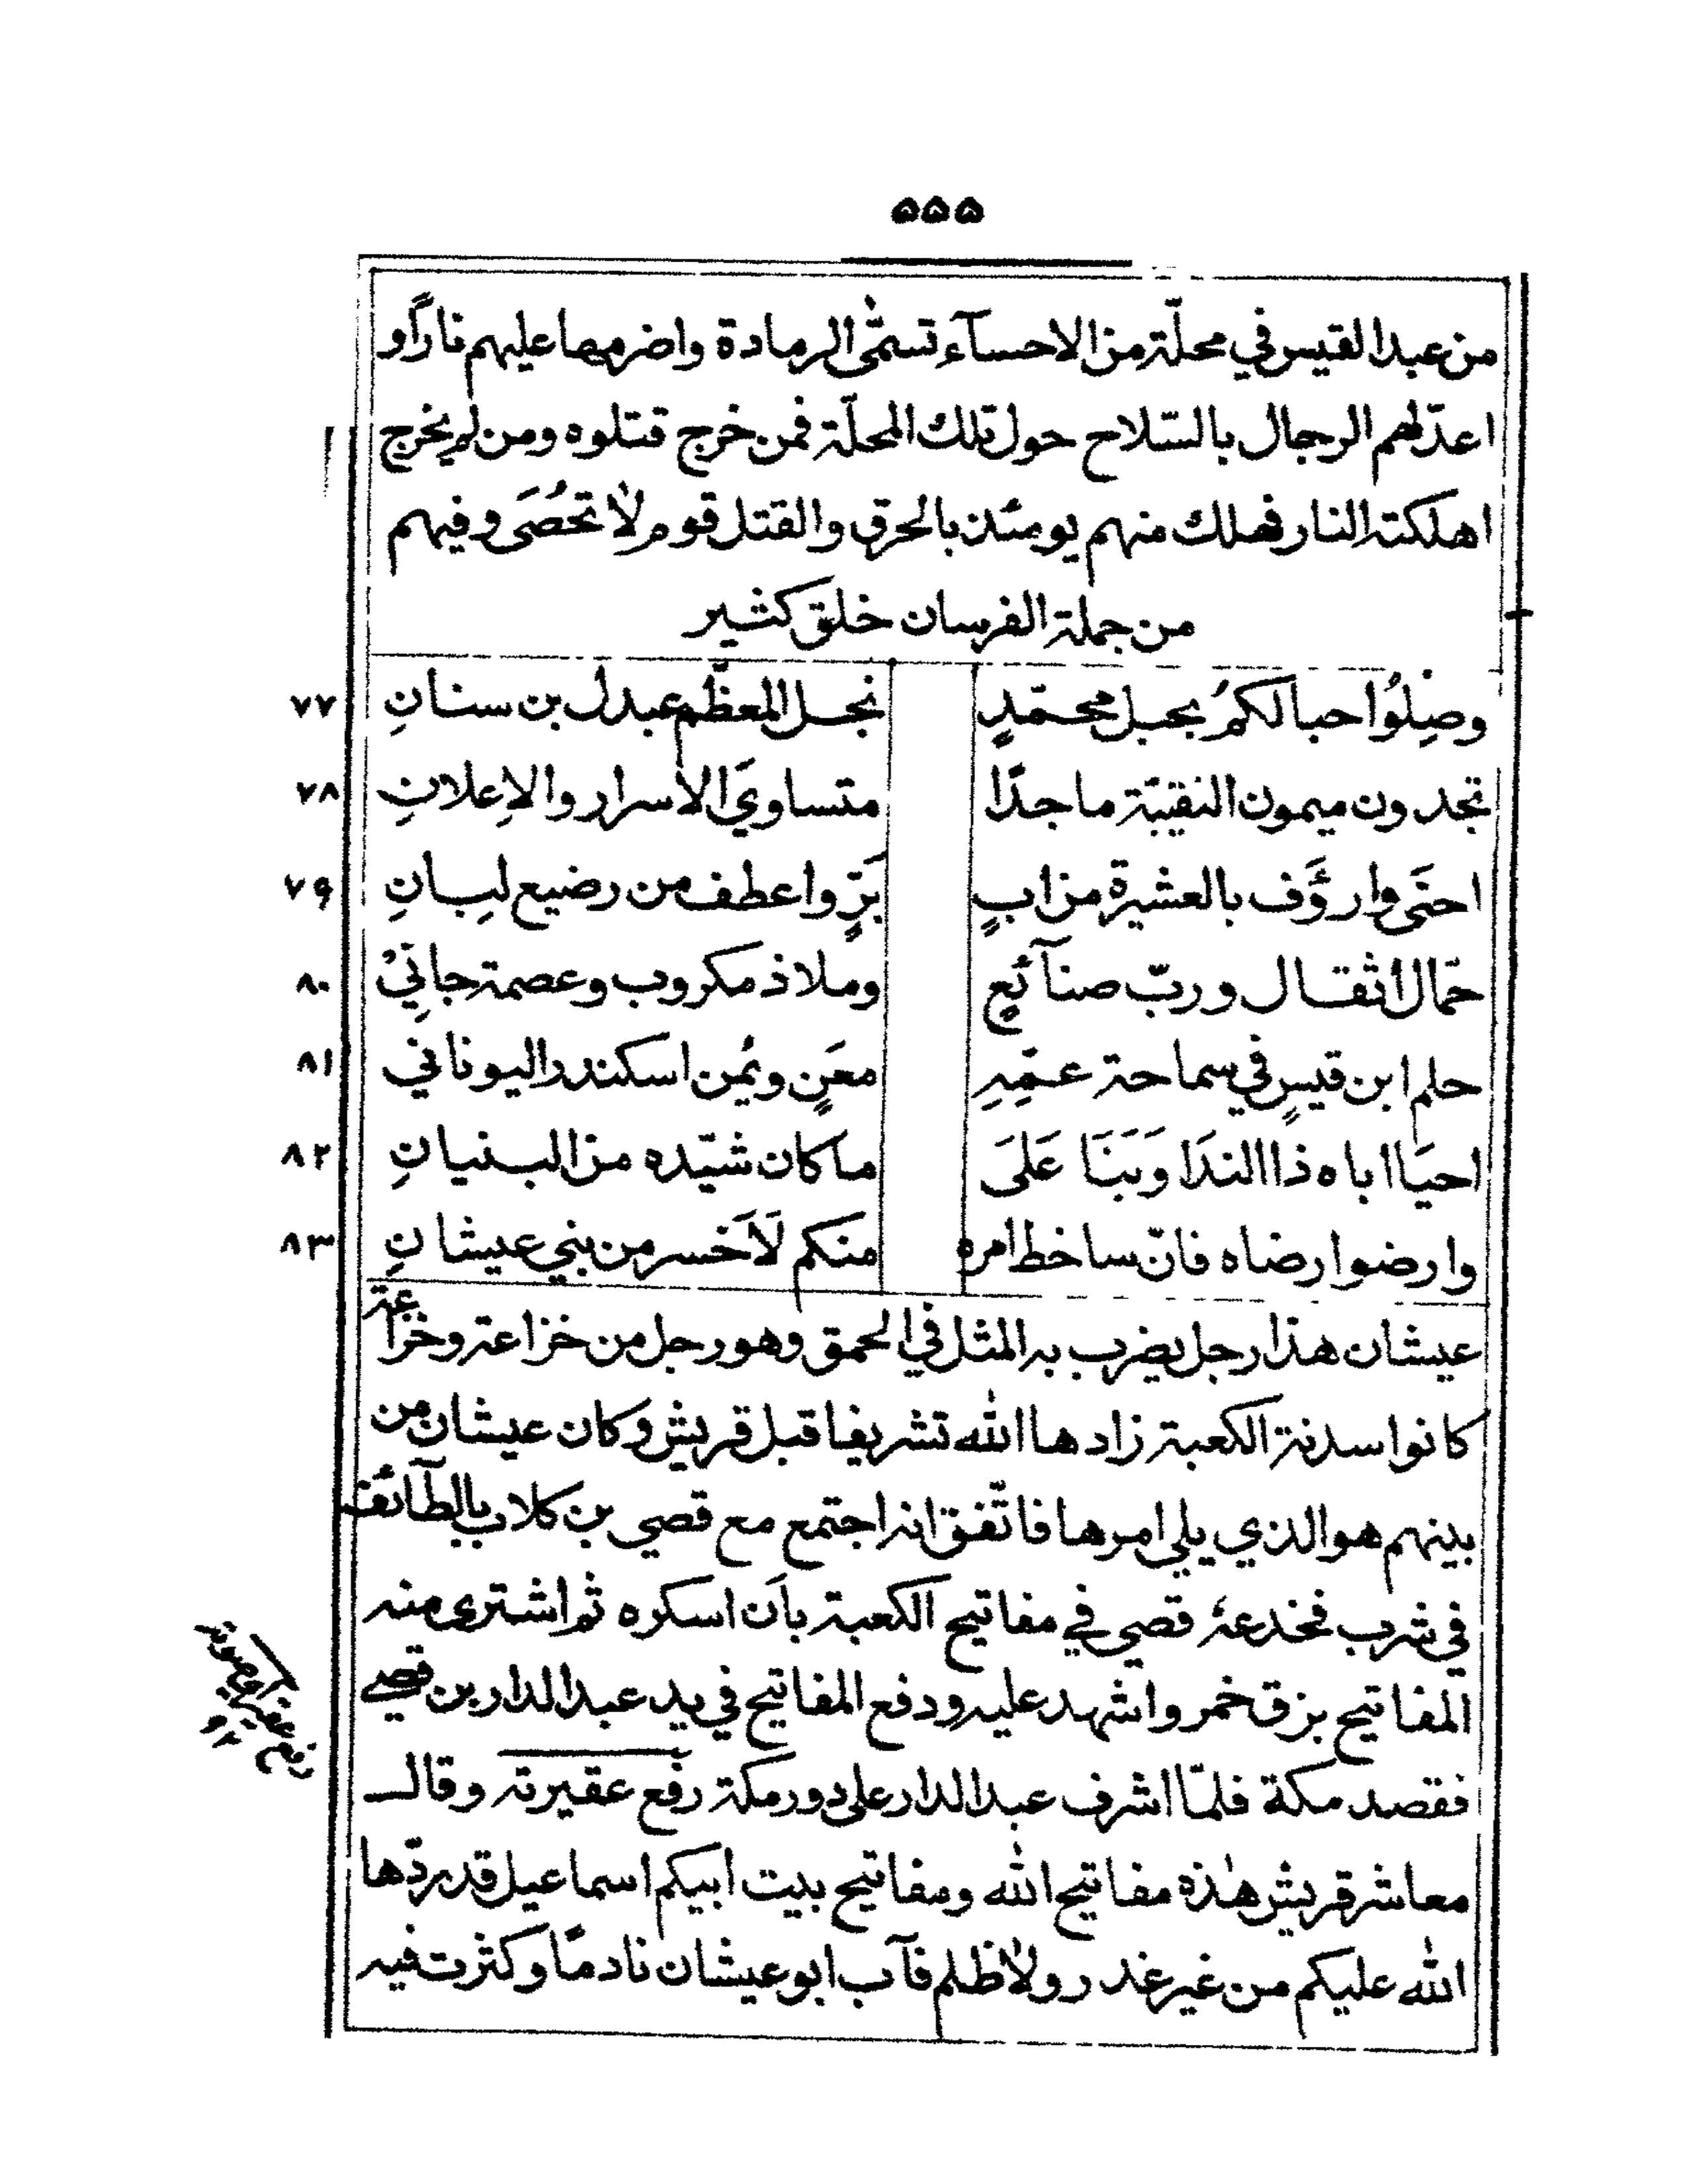 ۵۵۵
من عبد القيس في محلّة من الاحسآء تسمّى الرمادة واضرمها عليهم نارًا و
اعدّ لهم الرجال بالسّلاح حول تلك المحلّة فمن خرج قتلوه ومن لم يخرج
اهلكته النار فهلك منهم يومئذ بالحرق والقتل قوم لا تحُصَى وفيهم
من جملة الفرسان خلق كثير
وصِلُوا حبالكمُ بحبل محمّدٍ نجل المعظّم عبدل بن سنانِ ٧٧
تجدون ميمون النقيبّة ماجدًا متساويَ الأسرار والاِعلانِ ٧٨
احنَى وارؤَف بالعشيرة من ابٍ بَرٍّ واعطف من رضيع لبِانِ ٧٩
حمّال اثقال وربّ صنآئعٍ وملاذ مكروب وعصمة جانِيْ ٨٠
حلم ابن قيسٍ في سماحة عمّهِ معَنٍ ويُمن اسكندر اليوناني ٨١
احيَا اباه ذا الندَا وَبَنَا عَلىَ ما كان شيّده من البنيانِ ٨٢
وارضوا رضاه فانّ ساخط امره منكم لَاَخسر من بني عيشانِ ٨٣
عيشان هذا رجل يضرب به المثل في الحمق وهو رجل من خزاعة وخزاعة
كانوا سدنة الكعبة زادها الله تشريفا قبل قريش وكان عيشان من
بينهم هو الذي يلي امرها فاتّفق انه اجتمع مع قصي بن كلاب بالطآئف
في شرب فخدعهُ قصي في مفاتيح الكعبة بأن اسكره ثم اشترى منه
المفاتيح بزق خمر واشهد عليه ودفع المفاتيح في يد عبد الدار بن قصي
فقصد مكة فلمّا اشرف عبد الدار على دور مكة رفع عقيرته وقال
معاشر قريش هٰذه مفاتيح الله ومفاتيح بيت ابيكم اسماعيل قد ردّها
الله عليكم من غير غدر ولا ظلم فآب ابو عيشان نادمًا وكثرت فيه